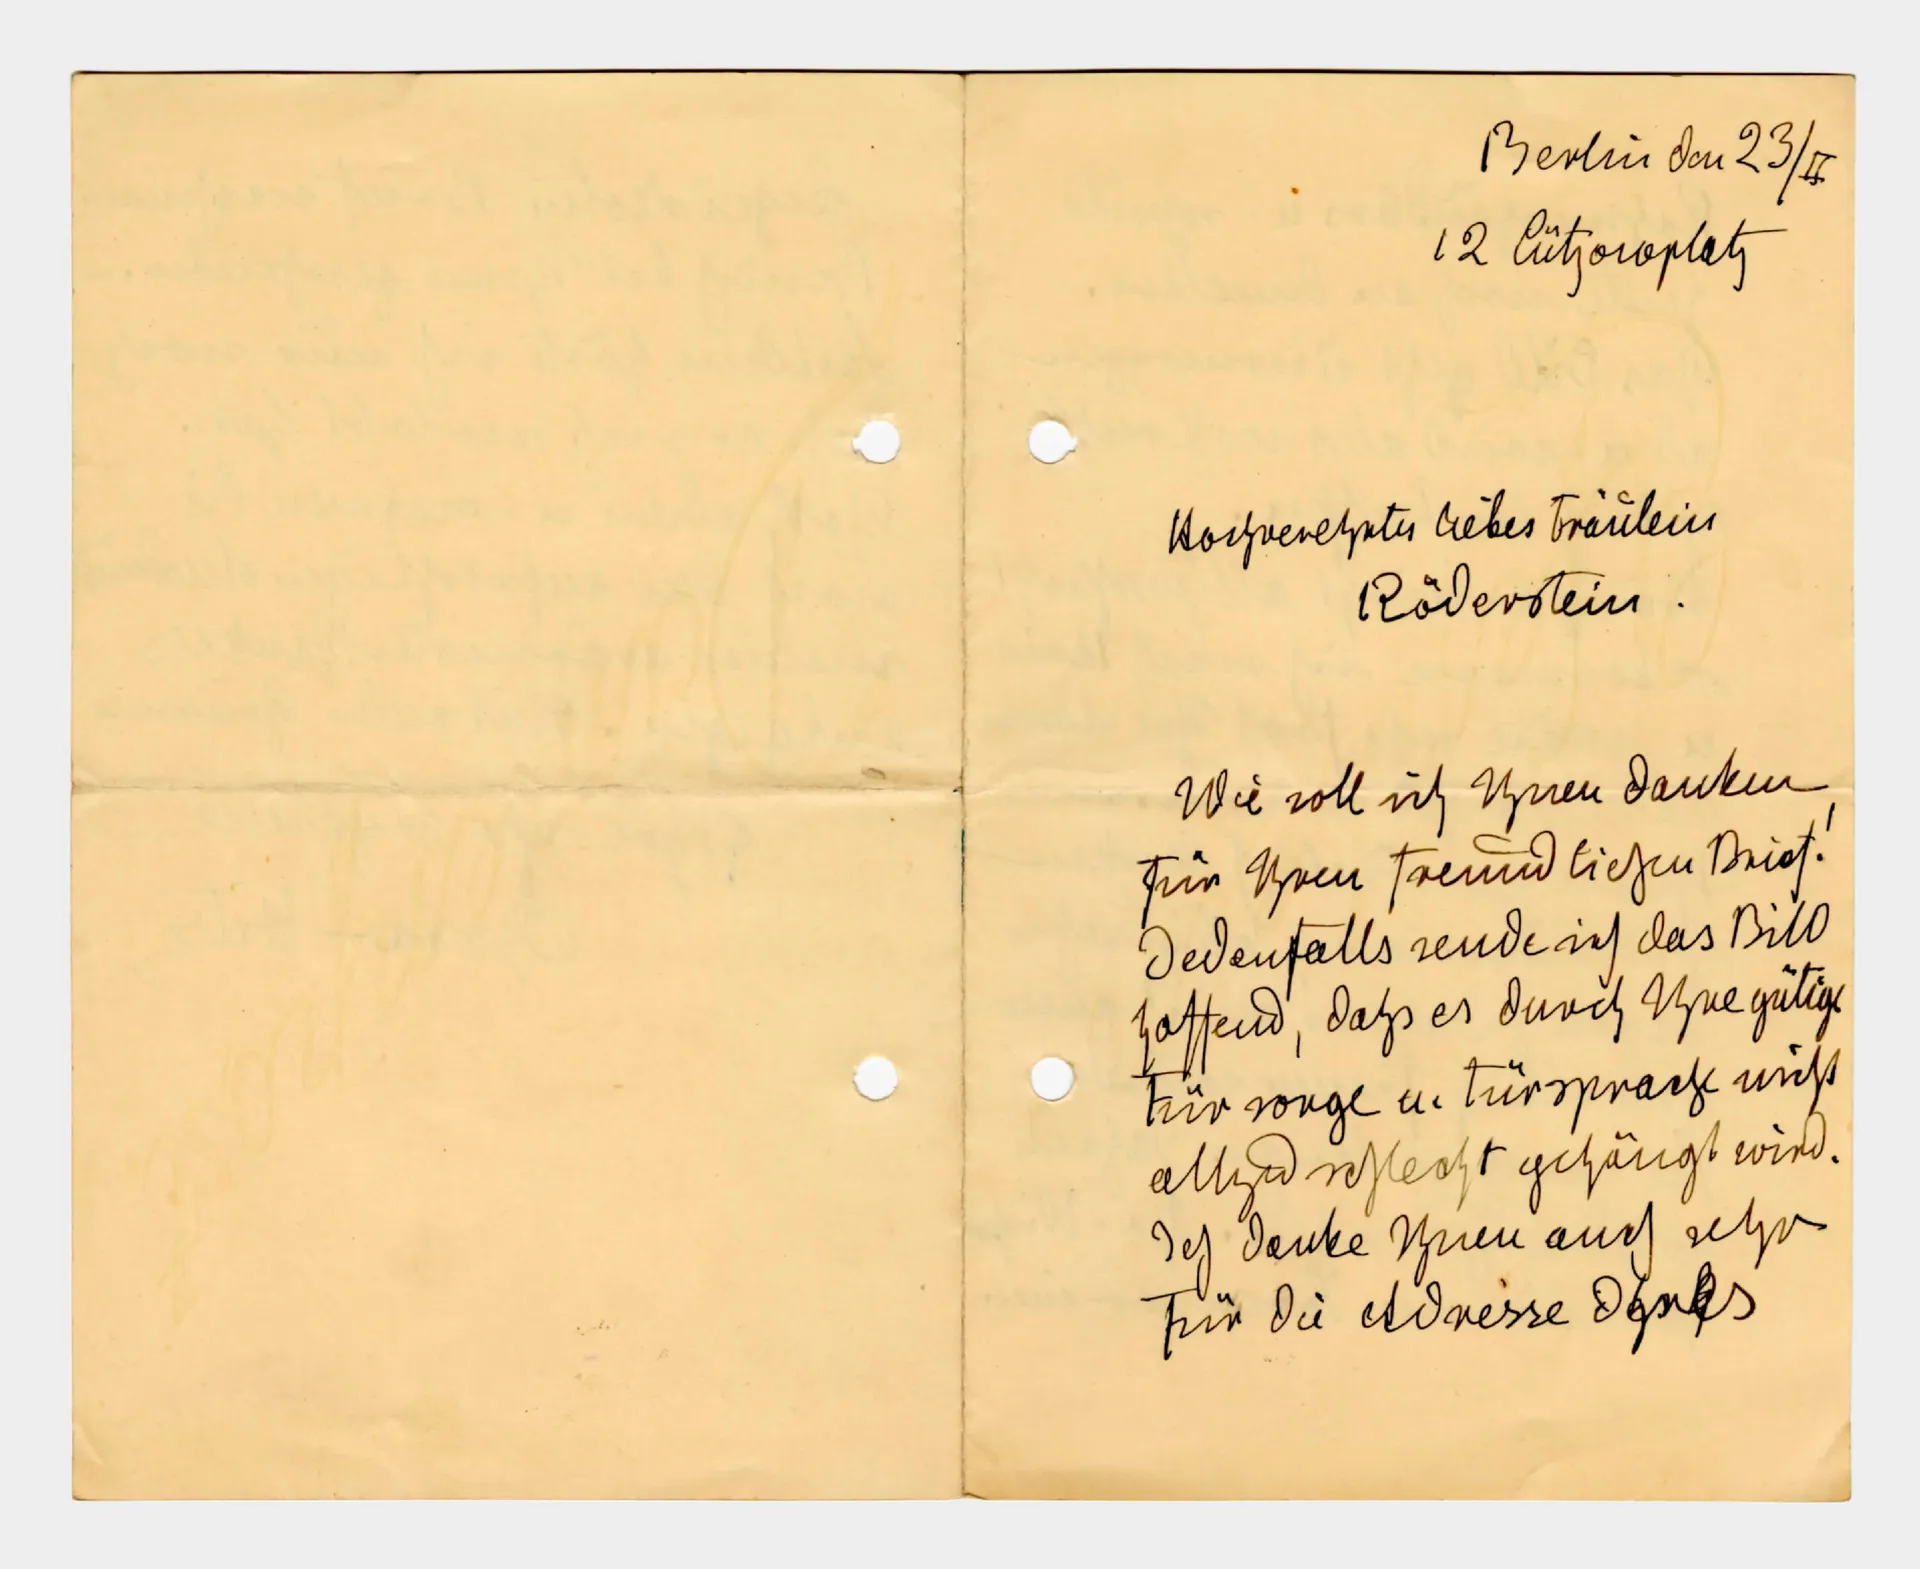 Berlin den 23/II
12 Lützowplatz
Hochverehrtes liebes Fräulein
Röderstein.
Wie soll ich Ihnen danken
für Ihren freundlichen Brief!
Jedenfalls sende ich das Bild
hoffend, dahs es durch Ihre gütige
Fürsorge u. Fürsprache nicht
allzu schlecht gehängt wird.
Ich danke Ihnen auch sehr
für die Adresse